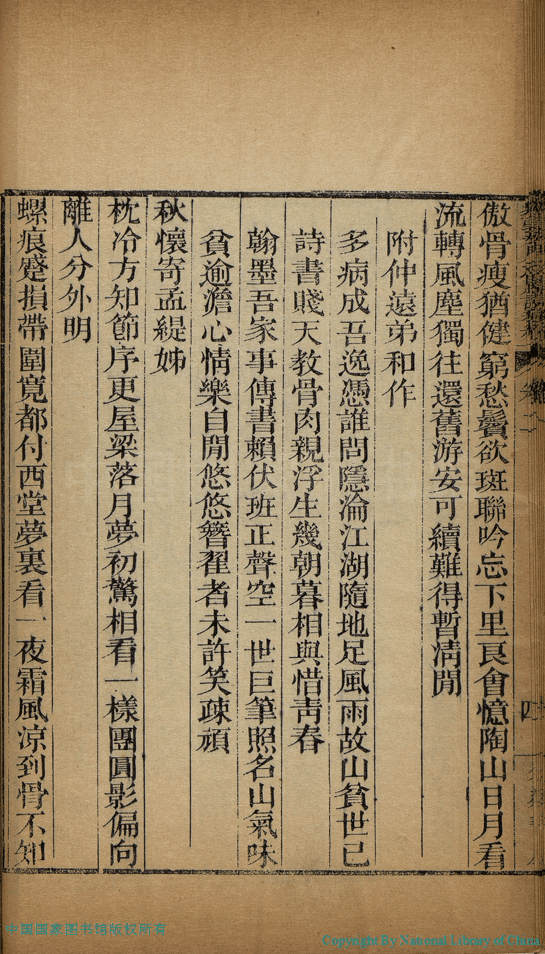 傲骨瘦猶健窮愁鬢欲斑聯吟忘下里良會憶陶山日月看
流轉風塵獨往還舊游安可續難得暫清閒
附仲遠弟和作
多病成吾逸憑誰問隱淪江湖隨地足風雨故山貧世已
詩書賤天教骨肉親浮生幾朝暮相與惜青春
翰墨吾家事傳書賴伏班正聲空一世巨筆照名山氣味
貧逾澹心情樂自閒悠悠簪翟者未許笑疎頑
秋懷寄孟緹姊
枕冷方知節序更屋梁落月夢初驚相看一樣團圓影偏向
離人分外明
螺痕蹙損帶圍寬都付西堂夢裏看一夜霜風涼到骨不知
中國國家图书馆版权所有
Copyright By National Library of China